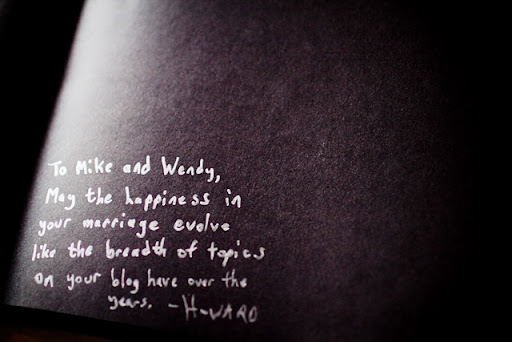 To Mike and Wendy,
May the happiness in
your marriage evolve
like the breadth of topics
on your blog have over the
years. -H-WARD